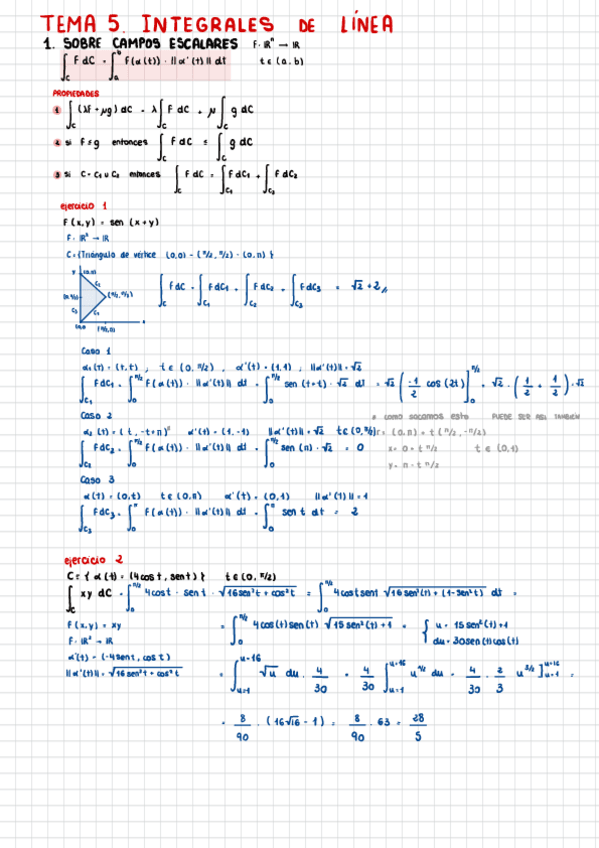 TEMA 5. INTEGRALES DE LÍNEA
1. SOBRE CAMPOS ESCALARES F: ℝⁿ → ℝ
∫_C F dC = ∫_a^b F(α(t)) · ||α'(t)|| dt t ∈ (a, b)
PROPIEDADES
1 ∫_C (λF + μg) dC = λ ∫_C F dC + μ ∫_C g dC
2 si F ≤ g entonces ∫_C F dC ≤ ∫_C g dC
3 si C = C₁ ∪ C₂ entonces ∫_C F dC = ∫_C₁ F dC₁ + ∫_C₂ F dC₂
ejercicio 1
F(x,y) = sen (x+y)
F: ℝ² → ℝ
C = {Triángulo de vértice (0,0) - (π/2, π/2) - (0, π) }
y (0,π)
C₂
(0,π/2) (π/2, π/2)
C₃ C₁
(0,0) (π/2,0)
∫_C F dC = ∫_C₁ F dC₁ + ∫_C₂ F dC₂ + ∫_C₃ F dC₃ = √2 + 2
Caso 1
α₁(t) = (t,t), t ∈ (0, π/2), α'(t) = (1,1), ||α'(t)|| = √2
∫_C₁ F dC₁ = ∫_0^π/2 F(α(t)) · ||α'(t)|| dt = ∫_0^π/2 sen (t+t) · √2 dt = √2 (-1/2 cos (2t)]_0^π/2 = √2 · (1/2 + 1/2) = √2
Caso 2 * como sacamos esto PUEDE SER ASÍ TAMBIÉN
α₂(t) = (t, -t+π)* α'(t) = (1,-1) ||α'(t)|| = √2 t ∈ (0, π/2) r = (0,π) + t (π/2, -π/2)
∫_C₂ F dC₂ = ∫_0^π/2 F(α(t)) · ||α'(t)|| dt = ∫_0^π/2 sen (π) · √2 = 0 x = 0 + t π/2 t ∈ (0,1)
y = π - t π/2
Caso 3
α(t) = (0,t) t ∈ (0,π) α'(t) = (0,1) ||α'(t)|| = 1
∫_C₃ F dC₃ = ∫_0^π F(α(t)) · ||α'(t)|| dt = ∫_0^π sen t dt = 2
ejercicio 2
C = { α(t) = (4cos t, sen t) } t ∈ (0, π/2)
∫_C xy dC = ∫_0^π/2 4cos t · sen t · √(16sen²t + cos²t) = ∫_0^π/2 4cos t sen t √(16 sen²(t) + (1-sen²t)) dt =
F(x,y) = xy = ∫_0^π/2 4cos(t) sen(t) √(15 sen²(t) + 1) = { u = 15 sen²(t) + 1
F: ℝ² → ℝ du = 30sen(t)cos(t)
α'(t) = (-4sen t, cos t)
||α'(t)|| = √(16sen²t + cos²t) = ∫_u=1^u=16 √u du · 4/30 = 4/30 ∫_u=1^u=16 u^1/2 du = 4/30 · 2/3 u^3/2 ]_u=1^u=16 =
= 8/90 · (16√16 - 1) = 8/90 · 63 = 28/5